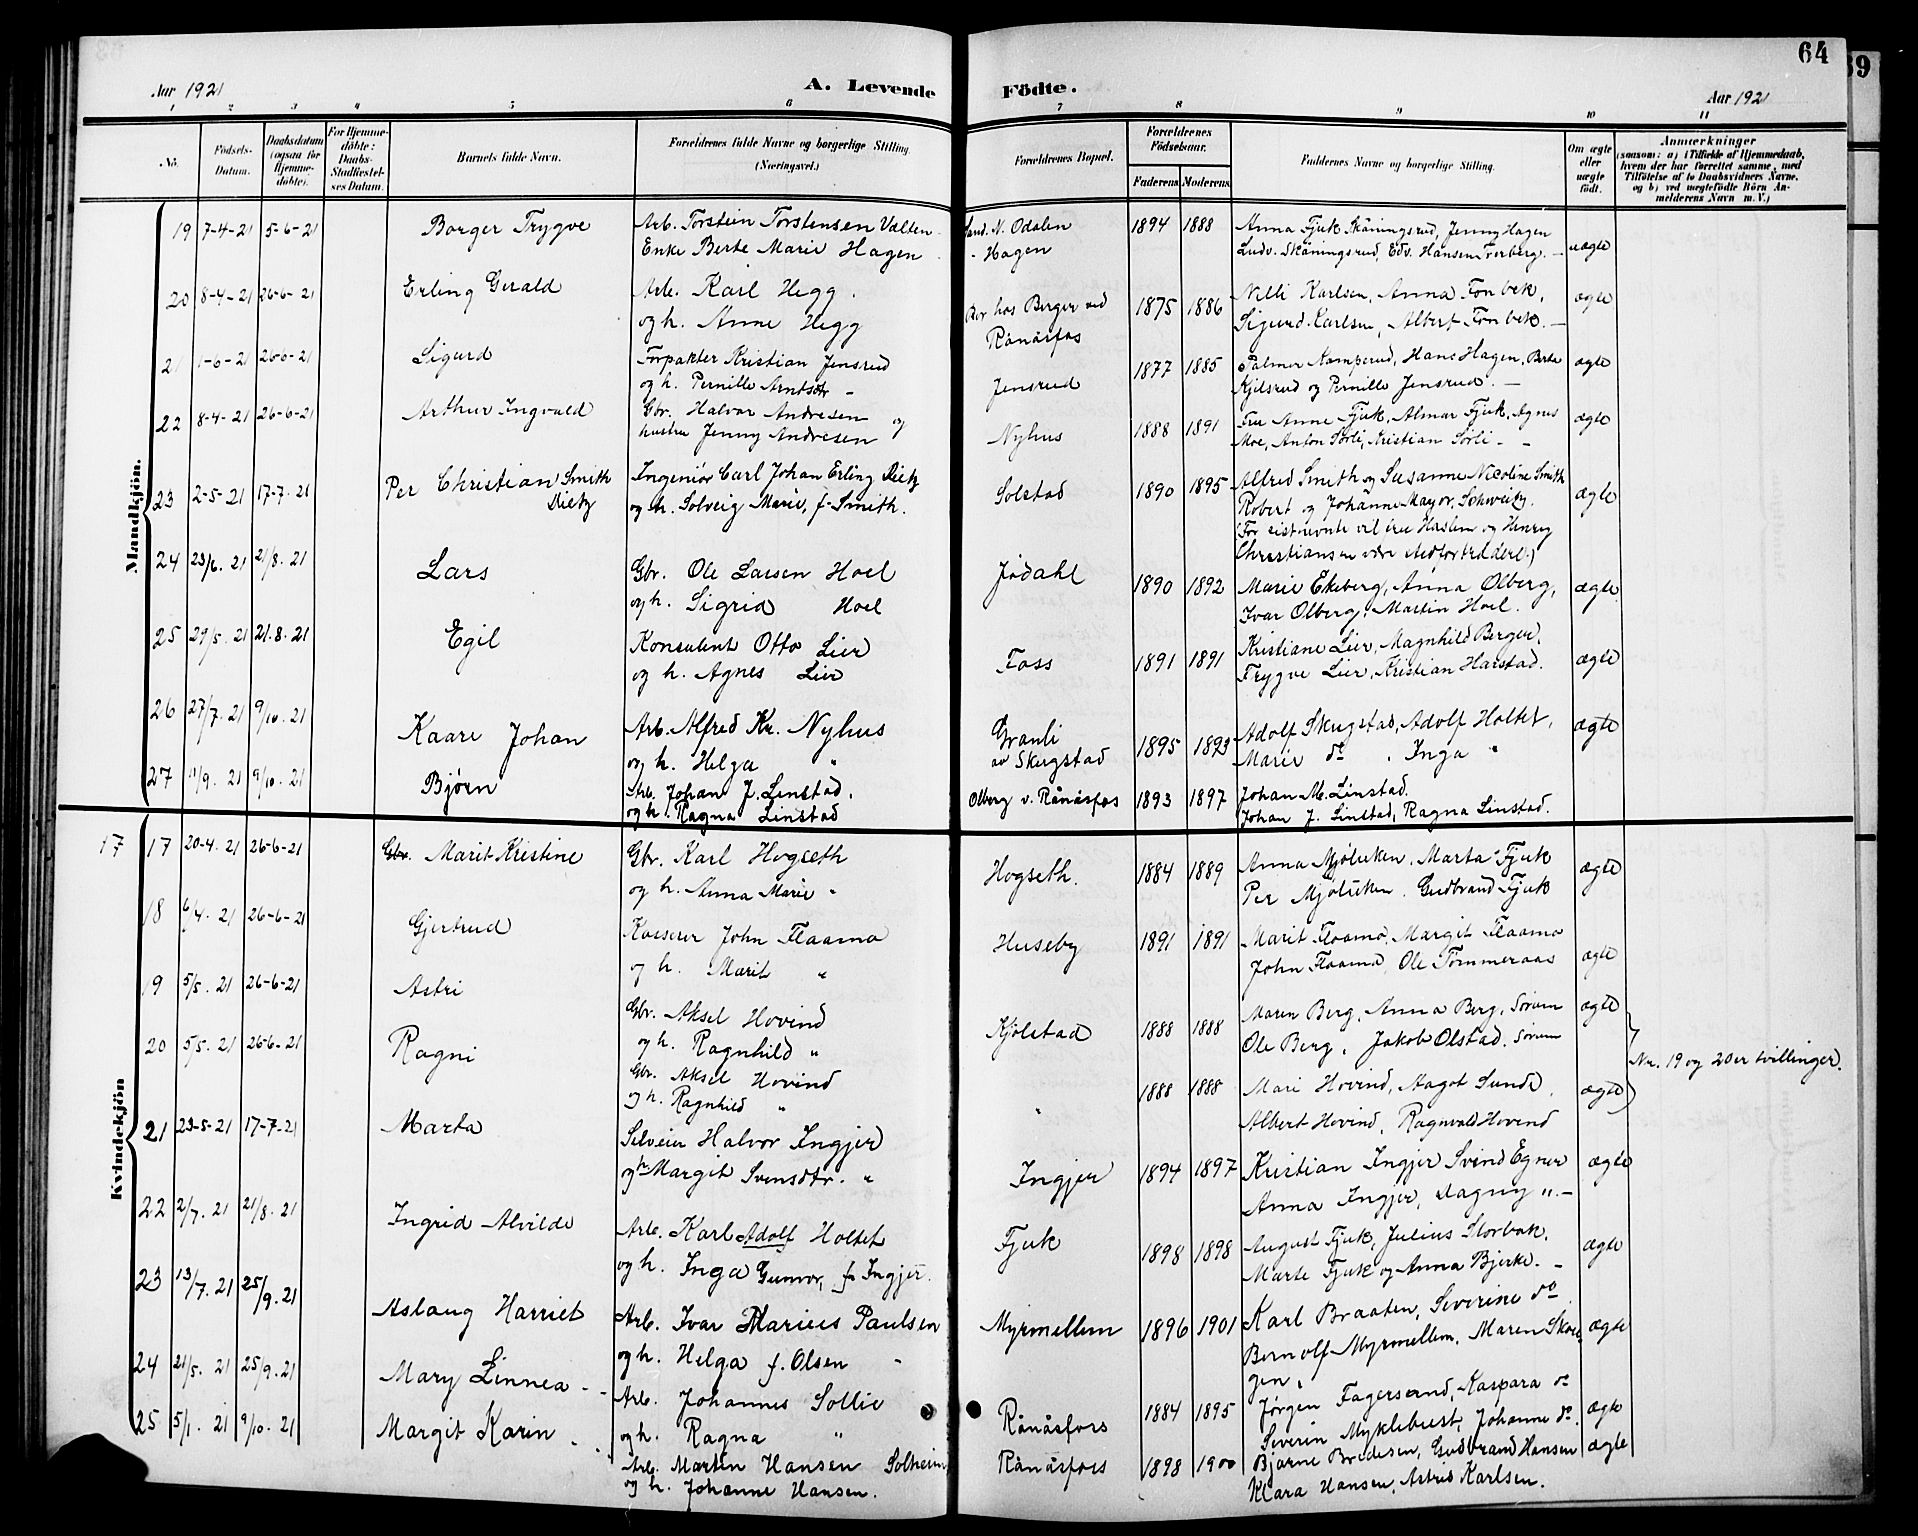 64
39
Aar 1921
A. Levende
Födte.
Aar 1921
1 2 3 4 5 6 7 8 9 10 11
No.
Födsels-
Datum.
Daabsdatum
(ogsaa for
Hjemme-
döbte).
For Hjemme-
döbte:
Daabs-
Stadfæstel-
ses Datum.
Barnets fulde Navn.
Forældrenes fulde Navne og borgerlige Stilling
(Næringsvei.)
Forældrenes Bopæl.
Forældrenes
Födselsaar.
Faderens Moderens
Faddernes Navne og borgerlige Stilling.
Om ægte
eller
uægte
født.
Anmærkninger
(saasom: a) i Tilfælde af Hjemmedaab,
hvem der har forrettet samme, med
Tilföielse af to Daabsvidners Navne,
og b) ved uægtefödte Börn An-
melderens Navn m. V.)
Mandkjön.
19 7-4-21 5-6-21 Borger Trygve Arb. Torstein Torstensen Valten Sand. N. Odalen 1894 1888 Anna Fjuk Skåningsrud, Jenny Hagen
Enke Berte Marie Hagen - Hagen Ludv. Skåningsrud, Edv. Hansen Tverberg. — uægte
20 8-4-21 26-6-21 Erling Gerald Arb. Karl Hegg. Bor hos Berger ved 1875 1886 Nelli Karlsen, Anna Fonbek, ægte
og h. Anne Hegg Rånåsfos Sigurd Karlsen, Albert Fonbek. —
21 1-6-21 26-6-21 Sigurd Forpakter Kristian Jensrud Jensrud 1877 1885 Palmer Kamperud, Hans Hagen, Berte ægte
og h. Pernille Arntsdtr — Kjilsrud og Pernille Jensrud. —
22 8-4-21 26-6-21 Arthur Ingvald Gbr. Halvor Andresen og Nyhus 1888 1891 Fru Anne Fjuk, Almar Fjuk, Agnes ægte
hustru Jenny Andresen Moe, Anton Sørli, Kristian Sørli - -
23 2-5-21 17-7-21 Per Christian Smith Ingeniör Carl Johan Erling Dietz Solstad 1890 1895 Alfred Smith og Susanne Nicoline Smith ægte
Dietz og h. Solveig Marie, f. Smith. Robert og Johanne Mayor, Schweitz.
(For sistnevnte vil fru Haslem og Henry
Christiansen være stedfortrædere.)
24 23/6. 21 21/8. 21 Lars Gbr. Ole Larsen Hoel Jødahl 1890 1892 Marie Ekeberg, Anna Olberg, ægte
og h. Sigrid Hoel Ivar Olberg, Martin Hoel.
25 29/5. 21 21.8.21 Egil Konsulent Otto Lier Foss 1891 1891 Kristiane Lier, Magnhild Berger, ægte
og h. Agnes Lier Trygve Lier, Kristian Harstad.
26 27/7. 21 9/10. 21 Kaare Johan Arb. Alfred Kr. Nyhus Granli 1895 1893 Adolf Skugstad, Adolf Holtet, ægte
og h. Helga " av Skugstad Marie do. Inga "
27 11/9. 21 9/10. 21 Bjørn Arb. Johan J. Linstad. Olberg v. Rånåsfos 1893 1897 Johan M. Linstad.
og h. Ragna Linstad Johan J. Linstad, Ragna Linstad.
Kvindekjön
17 17 20-4. 21 26-6-21 Gbr. Marit Kristine Gbr. Karl Hogseth Hogseth. 1884 1889 Anna Mjøluken, Marta Fjuk ægte
og h. Anna Marie " Per Mjøluken. Gudbrand Fjuk
18 6/4. 21 26-6-21 Gjertrud Kasserer John Flaamo Huseby 1891 1891 Marit Flaamo, Margit Flaamo
og h. Marit " John Flaamo, Ole Tømmeraas ægte
19 5/5. 21 26-6-21 Astri Gbr. Aksel Hovind Kjølstad 1888 1888 Maren Berg, Anna Berg, Sørum ægte
og h. Ragnhild " Ole Berg, Jakob Olstad. Sørum
Nr. 19 og 20 er tvillinger.
20 5/5. 21 26-6-21 Ragni Gbr. Aksel Hovind " 1888 1888 Mari Hovind, Aagot Sunde, ægte
og h. Ragnhild " Albert Hovind, Ragnvald Hovind
21 23-5-21 17-7-21 Marta Selveier Halvor Ingjer Ingjer 1894 1897 Kristian Ingjer Svend Egner ægte
og h. Margit Svensdtr. " Anna Ingjer, Dagny ". —
22 2/7. 21 21/8. 21 Ingrid Alvilde Arb. Karl Adolf Holtet Fjuk 1898 1898 August Fjuk, Julius Storbak, ægte
og h. Inga Gunvor, f. Ingjer. Marte Fjuk og Anna Bjerke. —
23 13/7. 21 25/9. 21 Aslaug Harriet Arb. Ivar Marius Paulsen Myrmellem 1896 1901 Karl Braaten, Severine do ægte
og h. Helga f. Olsen - Bernolf Myrmellem, Maren Skou
gen,
24 21/5. 21 25/9. 21 Mary Linnea Arb. Johannes Sollie Rånåsfors 1884 1895 Jørgen Fagersand, Kaspara do ægte
og h. Ragna " Severin Myklebust, Johanne do.
25 5/1. 21 9/10. 21 Margit Karin Arb. Martin Hansen Solheim Rånåsfors 1898 1900 Bjarne Bredesen, Gudbrand Hansen ægte
og h. Johanne Hansen. Klara Hansen, Astrid Karlsen.